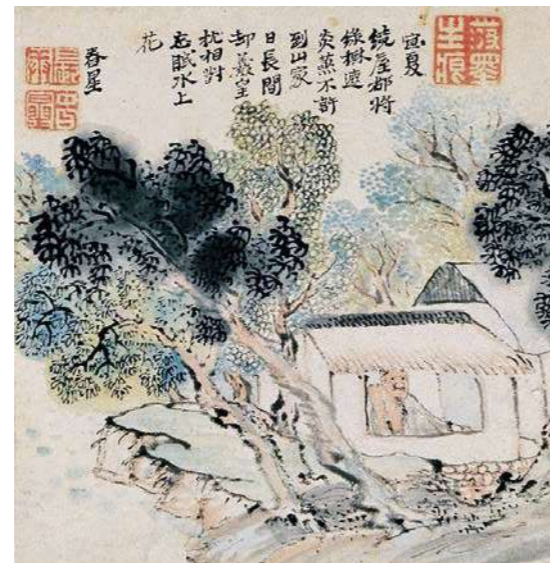 宜夏
繞屋都將
綠樹遮
炎蒸不許
到山家
日長間
却羲皇
枕相對
忘眠水上
花
春星